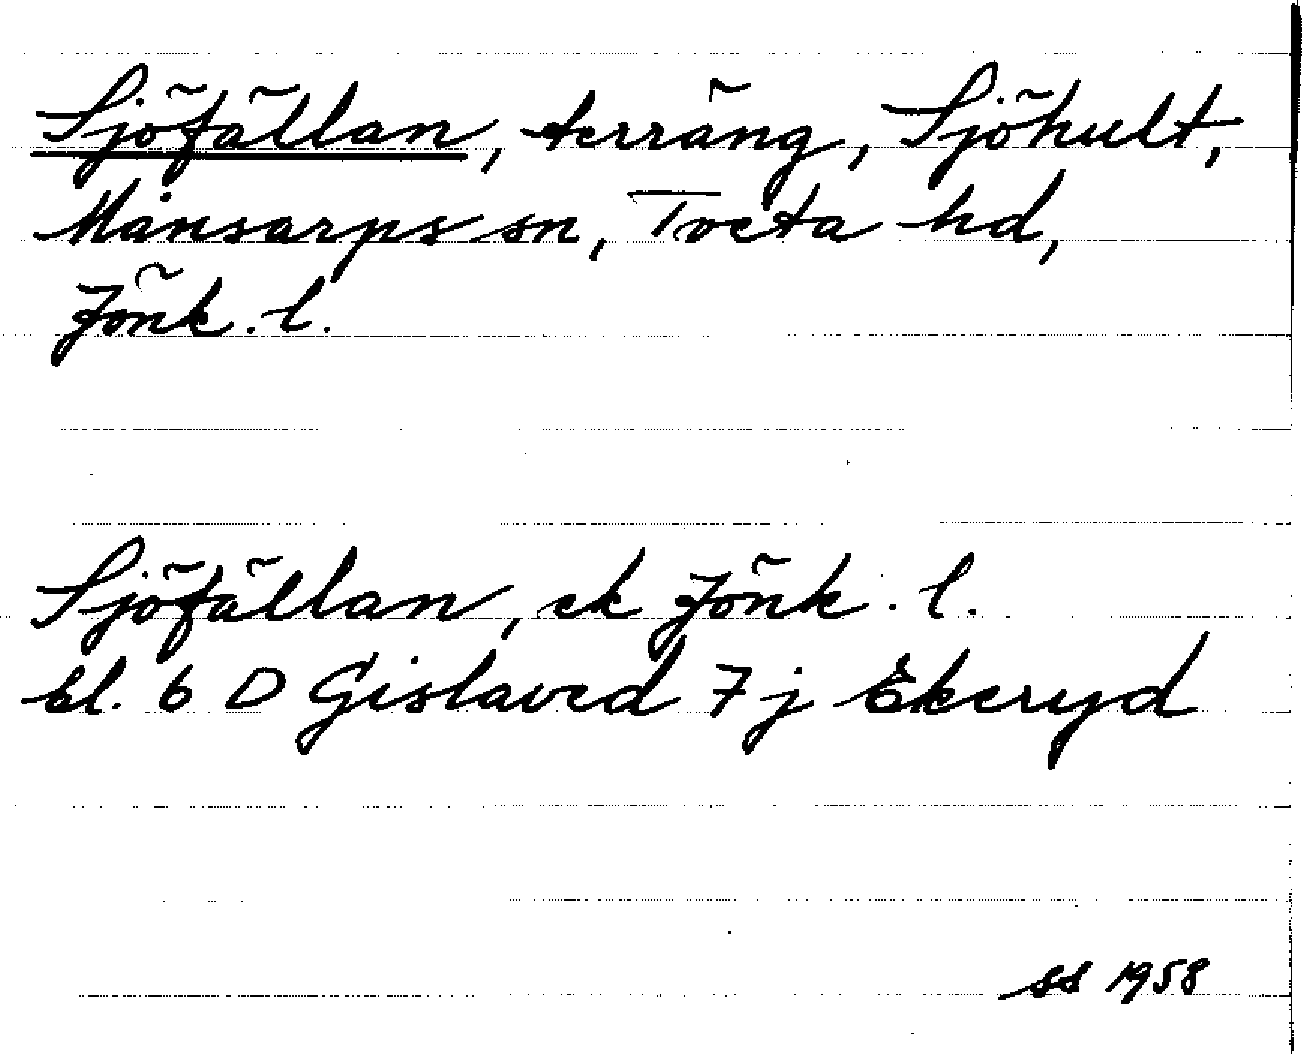 Sjöfällan, terräng, Sjöhult,
Månsarps sn, Tveta hd,
Jönk. l.
Sjöfällan, ek Jönk. l.
bl. 6 D Gislaved 7 j Ekeryd
SS 1958